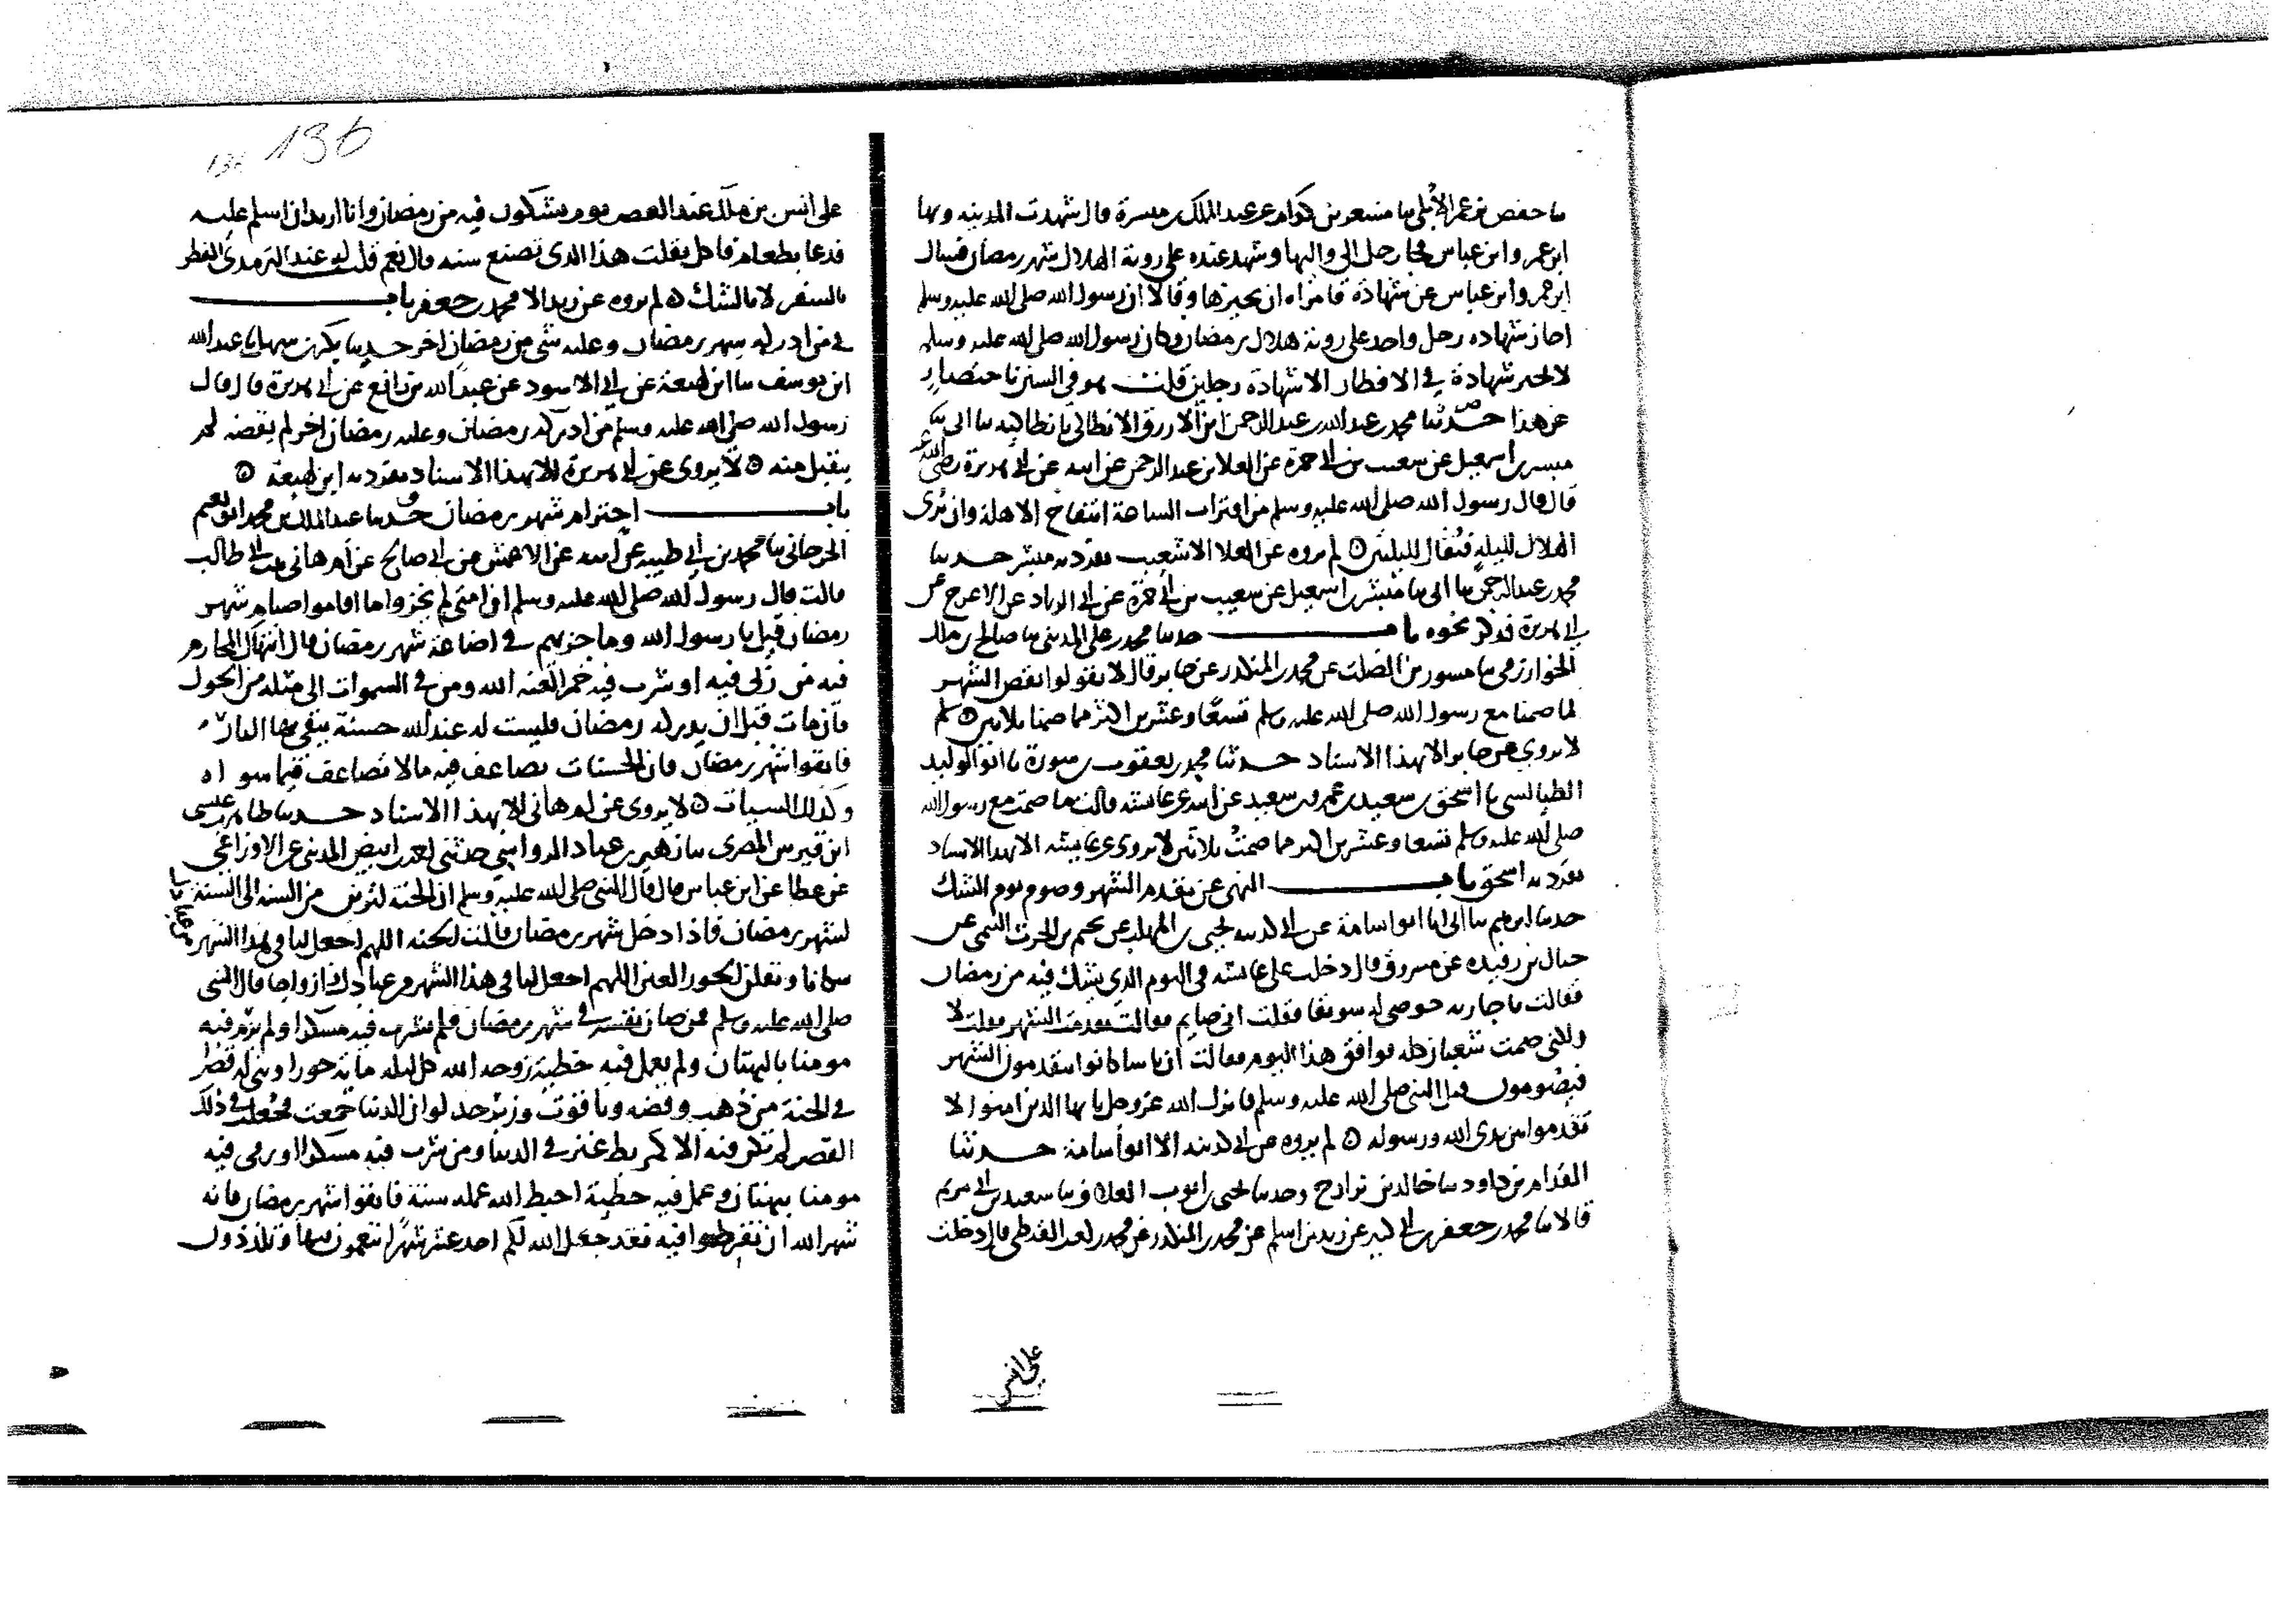 ما حفص بن عمر الأبلي نا مسعر بن كدام عن عبد الملك بن ميسرة قال شهدت المدينه وبها
ابن عمر وابن عباس فجا رجل الى واليها وشهد عنده على روية الهلال شهر رمضان فسال
ابن عمر وابن عباس عن شهادته فامراه ان يجيزها وقالا ان رسول الله صلى الله عليه وسلم
اجاز شهاده رجل واحد على روية هلال رمضان وكان رسول الله صلى الله عليه وسلم
لا يجيز شهادة في الافطار الا شهادة رجلين قلت هو في السنن باختصار
عن هذا حدثنا محمد بن عبد الله بن عبد الرحمن ابن الازرق الانطاكي بانطاكيه نا ابي نا
مبشر بن اسمعيل عن شعيب بن ابي حمزة عن العلا بن عبد الرحمن عن ابيه عن ابي هريرة رضي الله عنه
قال قال رسول الله صلى الله عليه وسلم من اقتراب الساعة انتفاخ الاهلة وان يُرى
الهلال لليلة فيقال لليلتين ۞ لم يروه عن العلا الا شعيب تفرد به مبشر حدثنا
محمد بن عبد الرحمن نا ابي نا مبشر بن اسمعيل عن شعيب بن ابي حمزة عن ابي الزناد عن الاعرج عن
ابي هريرة فذكر نحوه باب حدثنا محمد بن علي المديني نا صالح بن مالك
الخوارزمي نا مسور بن الصلت عن محمد بن المنكدر عن جابر قال لا تقولوا نقص الشهر
لما صمنا مع رسول الله صلى الله عليه وسلم تسعًا وعشرين اكثر مما صمنا ثلاثين ۞
لا يروى عن جابر الا بهذا الاسناد حدثنا محمد بن يعقوب بن سورة نا ابو الوليد
الطيالسي نا اسحق بن سعيد بن عمرو بن سعيد عن ابيه عن عايشه قالت ما صمت مع رسول الله
صلى الله عليه وسلم تسعا وعشرين اكثر مما صمتُ ثلاثين لا يروى عن عايشه الا بهذا الاسناد
تفرد به اسحق باب النهي عن تقدم الشهر وصوم يوم الشك
حدثنا ابراهيم نا ابي نا ابو اسامة عن ابي كدينه يحيى بن المهلب عن بن الحرث التيمي عن
حبال بن رفيده عن مسروق قال دخلت على عايشه في اليوم الذي يشك فيه من رمضان
فقالت يا جاريه خوضي له سويقا فقلت اني صايم فقالت تقدمت الشهر فقلت لا
ولكني صمت شعبان كله فوافق هذا اليوم فقالت ان ناسا كانوا يتقدمون الشهر
فيصومون قبل النبي صلى الله عليه وسلم فانزل الله عز وجل يا ايها الذين امنوا لا
تقدموا بين يدى الله ورسوله ۞ لم يروه عن ابي كدينه الا ابو اسامة حدثنا
المقدام بن داود نا خالد بن نزار ح وحدثنا يحيى بن ايوب العلاف نا سعيد بن ابي مريم
قالا نا محمد بن جعفر بن ابي كثير عن زيد بن اسلم عن محمد بن المنكدر عن محمد بن كعب القرظي قال دخلت
على انس
136
على انس بن ملك عند العصر يوم يشكون فيه من رمضان وانا اريد ان اسلم عليه
فدعا بطعام فاكل فقلت هذا الذى تصنع سنه قال نعم قلت هو عند الترمذى الفطر
بالسفر لا بالشك ۞ لم يروه عن زيد الا محمد بن جعفر باب
في من ادركه شهر رمضان وعليه شي من رمضان اخر حدثنا بكر بن سهل نا عبد الله
ابن يوسف نا ابن لهيعة عن ابي الاسود عن عبد الله بن رافع عن ابي هريرة قال قال
رسول الله صلى الله عليه وسلم من ادركه رمضان وعليه رمضان اخر لم يقضه لم
يتقبل منه ۞ لا يروى عن ابي هريرة الا بهذا الاسناد تفرد به ابن لهيعة ۞
باب احترام شهر رمضان حدثنا عبد الملك بن محمد ابو نعيم
الجرجاني نا محمد بن ابي طيبه عن ابيه عن الاعمش عن ابي صالح عن ام هاني بنت ابي طالب
قالت قال رسول الله صلى الله عليه وسلم ان امتي لم يخزوا ما اقاموا صيام شهر
رمضان قيل يا رسول الله وما خزيهم في اضاعة شهر رمضان قال انتهاك المحارم
فيه من زنى فيه او شرب فيه خمرا لعنه الله ومن في السموات الى مثله من الحول
فان مات قبل ان يدركه رمضان فليست له عند الله حسنة يتقي بها النار
فاتقوا شهر رمضان فان الحسنات تضاعف فيه مالا تضاعف فيما سواه
وكذلك السيات ۞ لا يروى عن ام هاني الا بهذا الاسناد حدثنا طاهر بن عيسى
ابن قيرس المصرى نا زهير بن عباد الرواسي حدثني احمد بن ابيض المديني عن الاوزاعي
عن عطا عن ابن عباس قال قال النبي صلى الله عليه وسلم ان الجنة لتزين من السنه الى السنة
لشهر رمضان فاذا دخل شهر رمضان قالت الجنه اللهم اجعل لنا في هذا الشهر من عبادك
سكانا وتقلن الحور العين اللهم اجعل لنا في هذا الشهر من عبادك ازواجا قال النبي
صلى الله عليه وسلم فمن صان نفسه في شهر رمضان فلم يشرب فيه مسكرا ولم يرم فيه
مومنا بالبهتان ولم يعمل فيه خطية زوجه الله كل ليله مائة حورا وبنى له قصرا
في الجنة من ذهب وفضه وياقوت وزبرجد لو ان الدنيا جمعت فجعلت في ذلك
القصر لم تكن فيه الا كمربط عنز في الدنيا ومن شرب فيه مسكرا او رمى فيه
مومنا ببهتان وعمل فيه خطية احبط الله عمله سنة فاتقوا شهر رمضان فانه
شهر الله ان تفرطوا فيه فقد جعل الله لكم احد عشر شهرًا تنعمون فيها وتلذذون